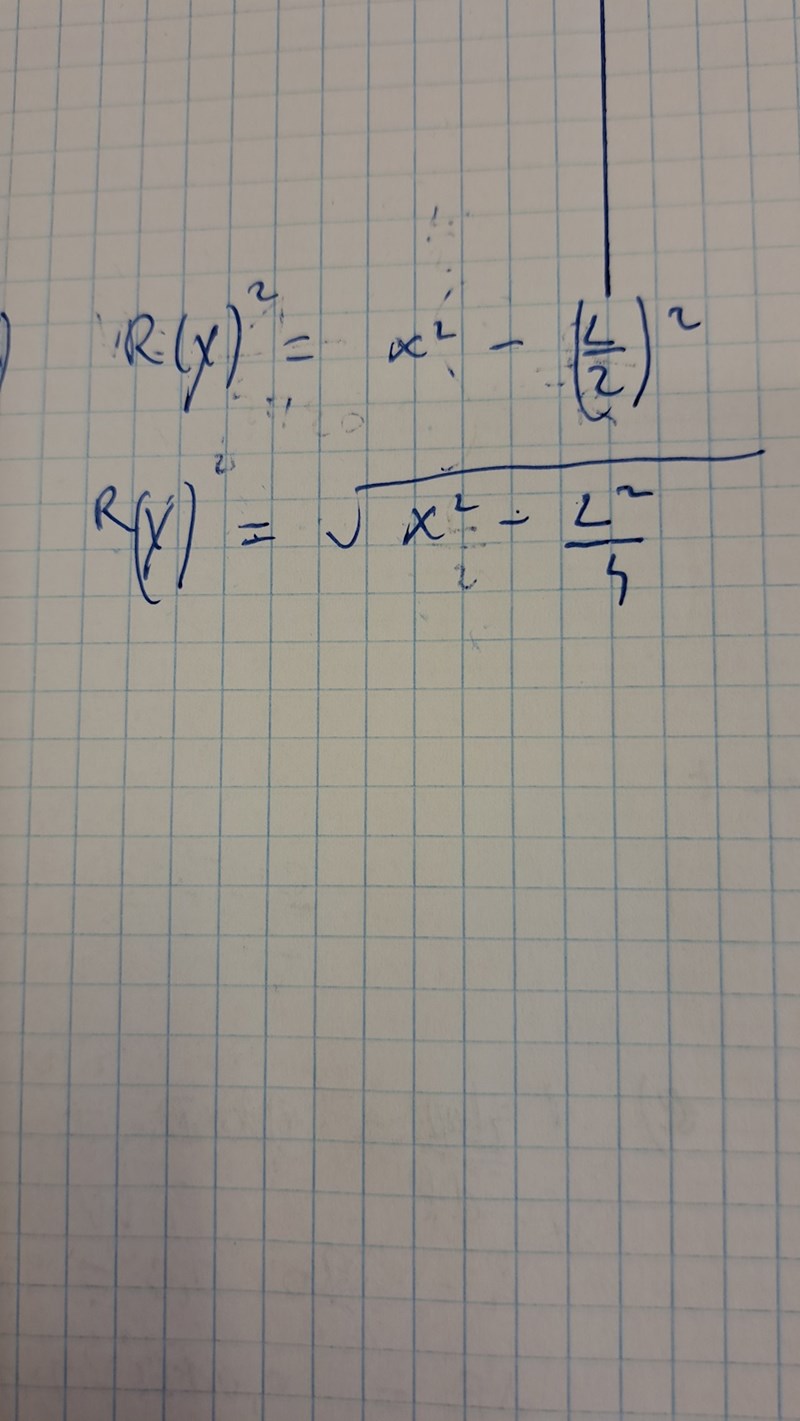 R(x)² = x² - (L/2)²
R(x) = √(x² - L²/4)